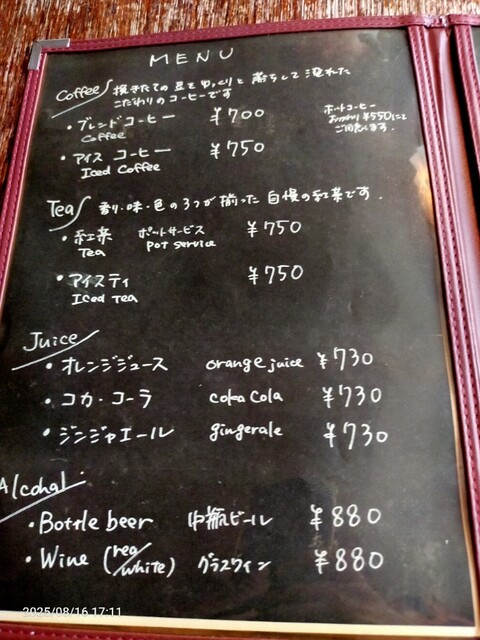 MENU
Coffee 挽きたての豆をゆっくりと蒸らして淹れた
こだわりのコーヒーです
・ブレンドコーヒー ¥700
Coffee
ホットコーヒー
おかわり ¥550にて
ご用意します.
・アイス コーヒー ¥750
Iced Coffee
Tea 香り・味・色の3つが揃った自慢の紅茶です.
・紅茶 ポットサービス ¥750
Tea Pot service
・アイスティ ¥750
Iced Tea
Juice
・オレンジジュース orange juice ¥730
・コカ・コーラ coka cola ¥730
・ジンジャエール gingerale ¥730
Alcohal
・Bottle beer 中瓶ビール ¥880
・Wine (red/white) グラスワイン ¥880
2025/08/16 17:11